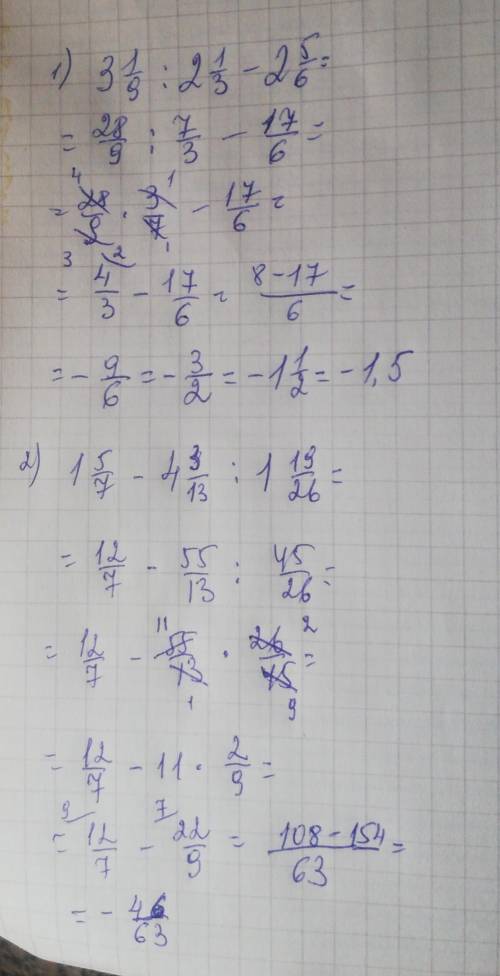 1) 3 1/9 : 2 1/3 - 2 5/6 =
= 28/9 : 7/3 - 17/6 =
= 28/9 · 3/7 - 17/6 =
= 4/3 - 17/6 = (8-17)/6 =
= - 9/6 = - 3/2 = - 1 1/2 = - 1,5
2) 1 5/7 - 4 3/13 : 1 19/26 =
= 12/7 - 55/13 : 45/26 =
= 12/7 - 55/13 · 26/45 =
= 12/7 - 11 · 2/9 =
= 12/7 - 22/9 = (108-154)/63 =
= - 46/63